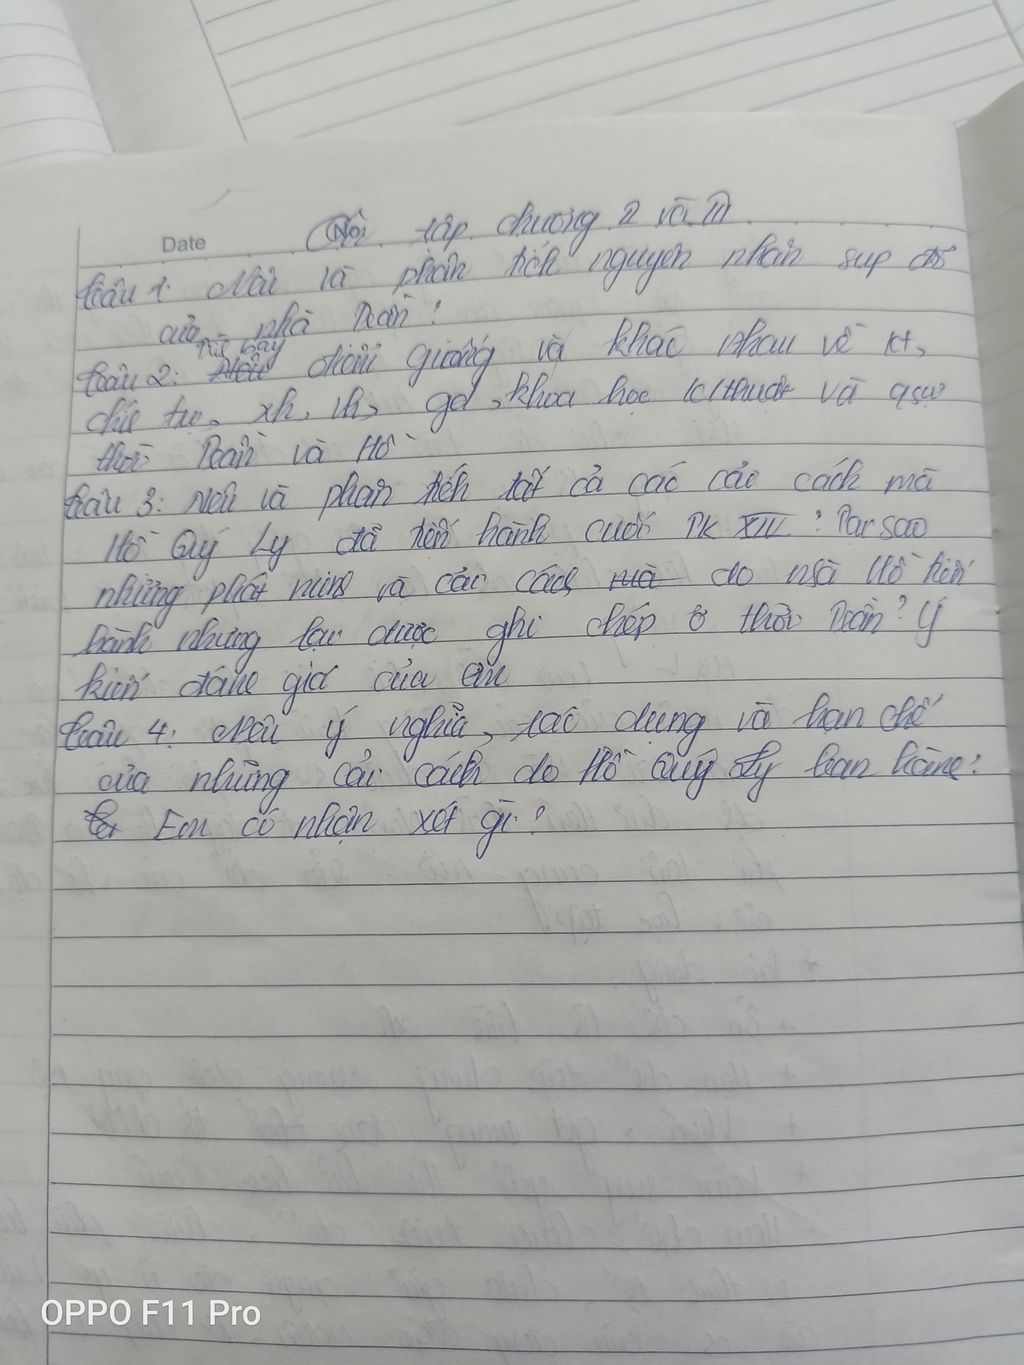 Date No:
Ôn tập chương II và III
Câu 1: Nêu và phân tích nguyên nhân sụp đổ
của nhà Trần?
Trình bày
Câu 2: Nêu điểm giống và khác nhau về kt,
ctrị, xh, vh, gd, khoa học kĩ thuật và qsự
thời Trần và Hồ
Câu 3: Nêu và phân tích tất cả các cải cách mà
Hồ Quý Ly đã tiến hành cuối TK XIII? Tại sao
những phát minh và cải cách mà do nhà Hồ tiến
hành nhưng lại được ghi chép ở thời Trần? Ý
kiến đánh giá của em
Câu 4: Nêu ý nghĩa, tác dụng và hạn chế
của những cải cách do Hồ Quý Ly ban hành?
Em có nhận xét gì?
OPPO F11 Pro